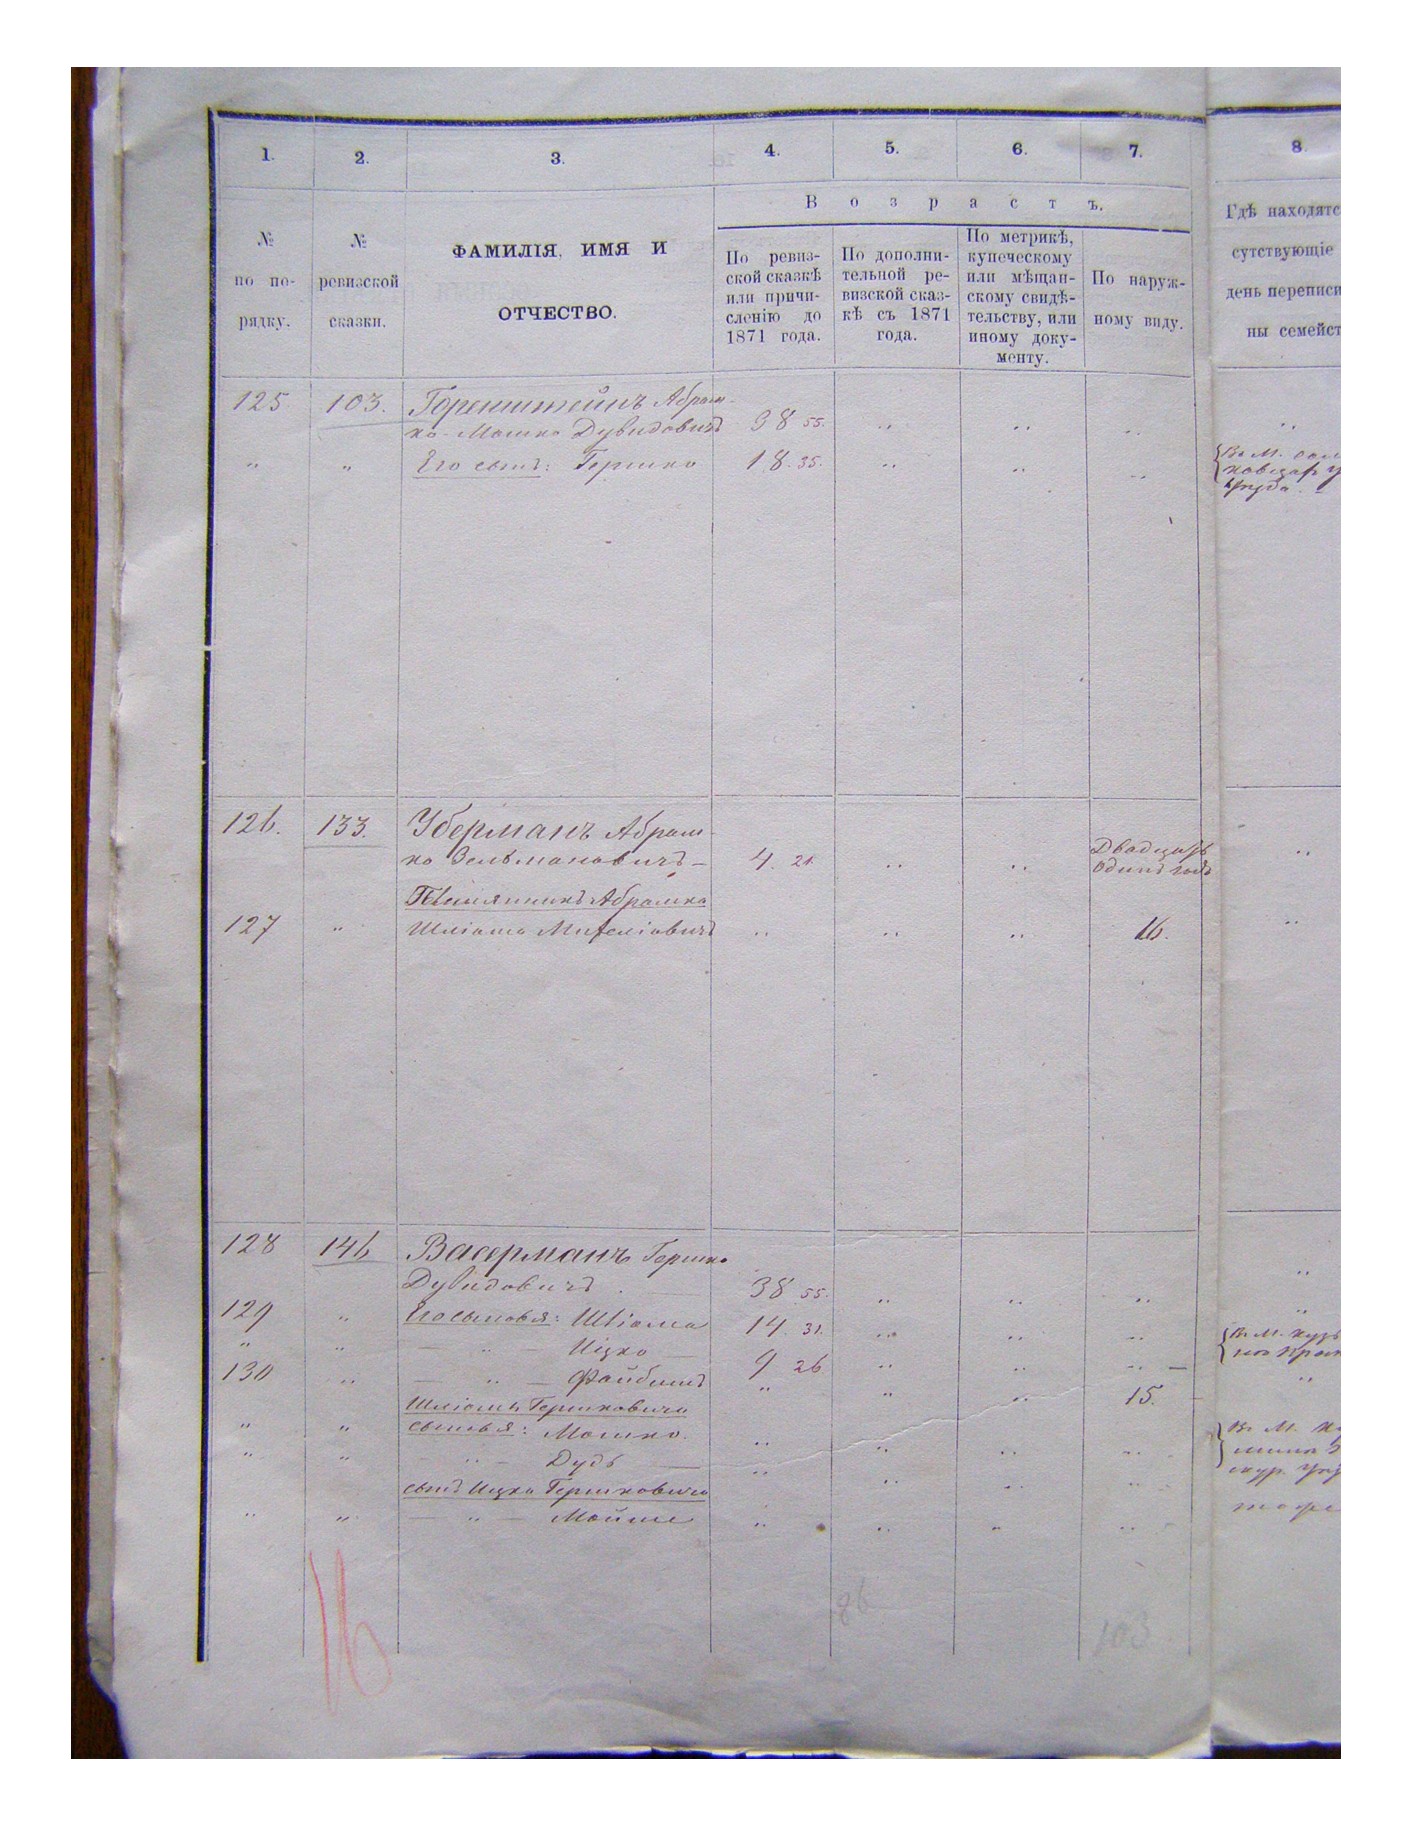 1. 2. 3. 4. 5. 6. 7. 8.
Возрастъ.
№
по по-
рядку.
№
ревизской
сказки.
ФАМИЛІЯ, ИМЯ И
ОТЧЕСТВО.
По ревиз-
ской сказкѣ
или причи-
сленію до
1871 года.
По дополни-
тельной ре-
визской сказ-
кѣ съ 1871
года.
По метрикѣ,
купеческому
или мѣщан-
скому свидѣ-
тельству, или
иному доку-
менту.
По наруж-
ному виду.
Гдѣ находятс
сутствующіе
день переписи
ны семейст
125 103. Горенштейнъ Абрам-
ко-Мошко Дувидовичъ 38 55. .. .. .. ..
" " Его сынъ: Гершко 18. 35. .. .. ..
126. 133. Уберманъ Абрам-
ко Зельмановичъ — 4. 21. .. .. Двадцать ..
одинъ годъ
Племянникъ Абрамка
127 " Шліома .. .. .. 16. ..
128 146 Васерманъ Гершко
Дувидовичъ. 38 55. .. .. .. ..
129 " Его сыновья: Шліома 14. 31. .. .. .. ..
" " — " — Ицко — 9 26 .. .. ..
130 .. — " — Файбишъ " " .. 15. ..
Шліомы Гершковича
" " сыновья: Мошко. .. .. .. ..
" " — " — Дудь .. .. .. ..
сынъ Ицка Гершковича
.. " — " — Мойше .. .. .. ..
16
86
103